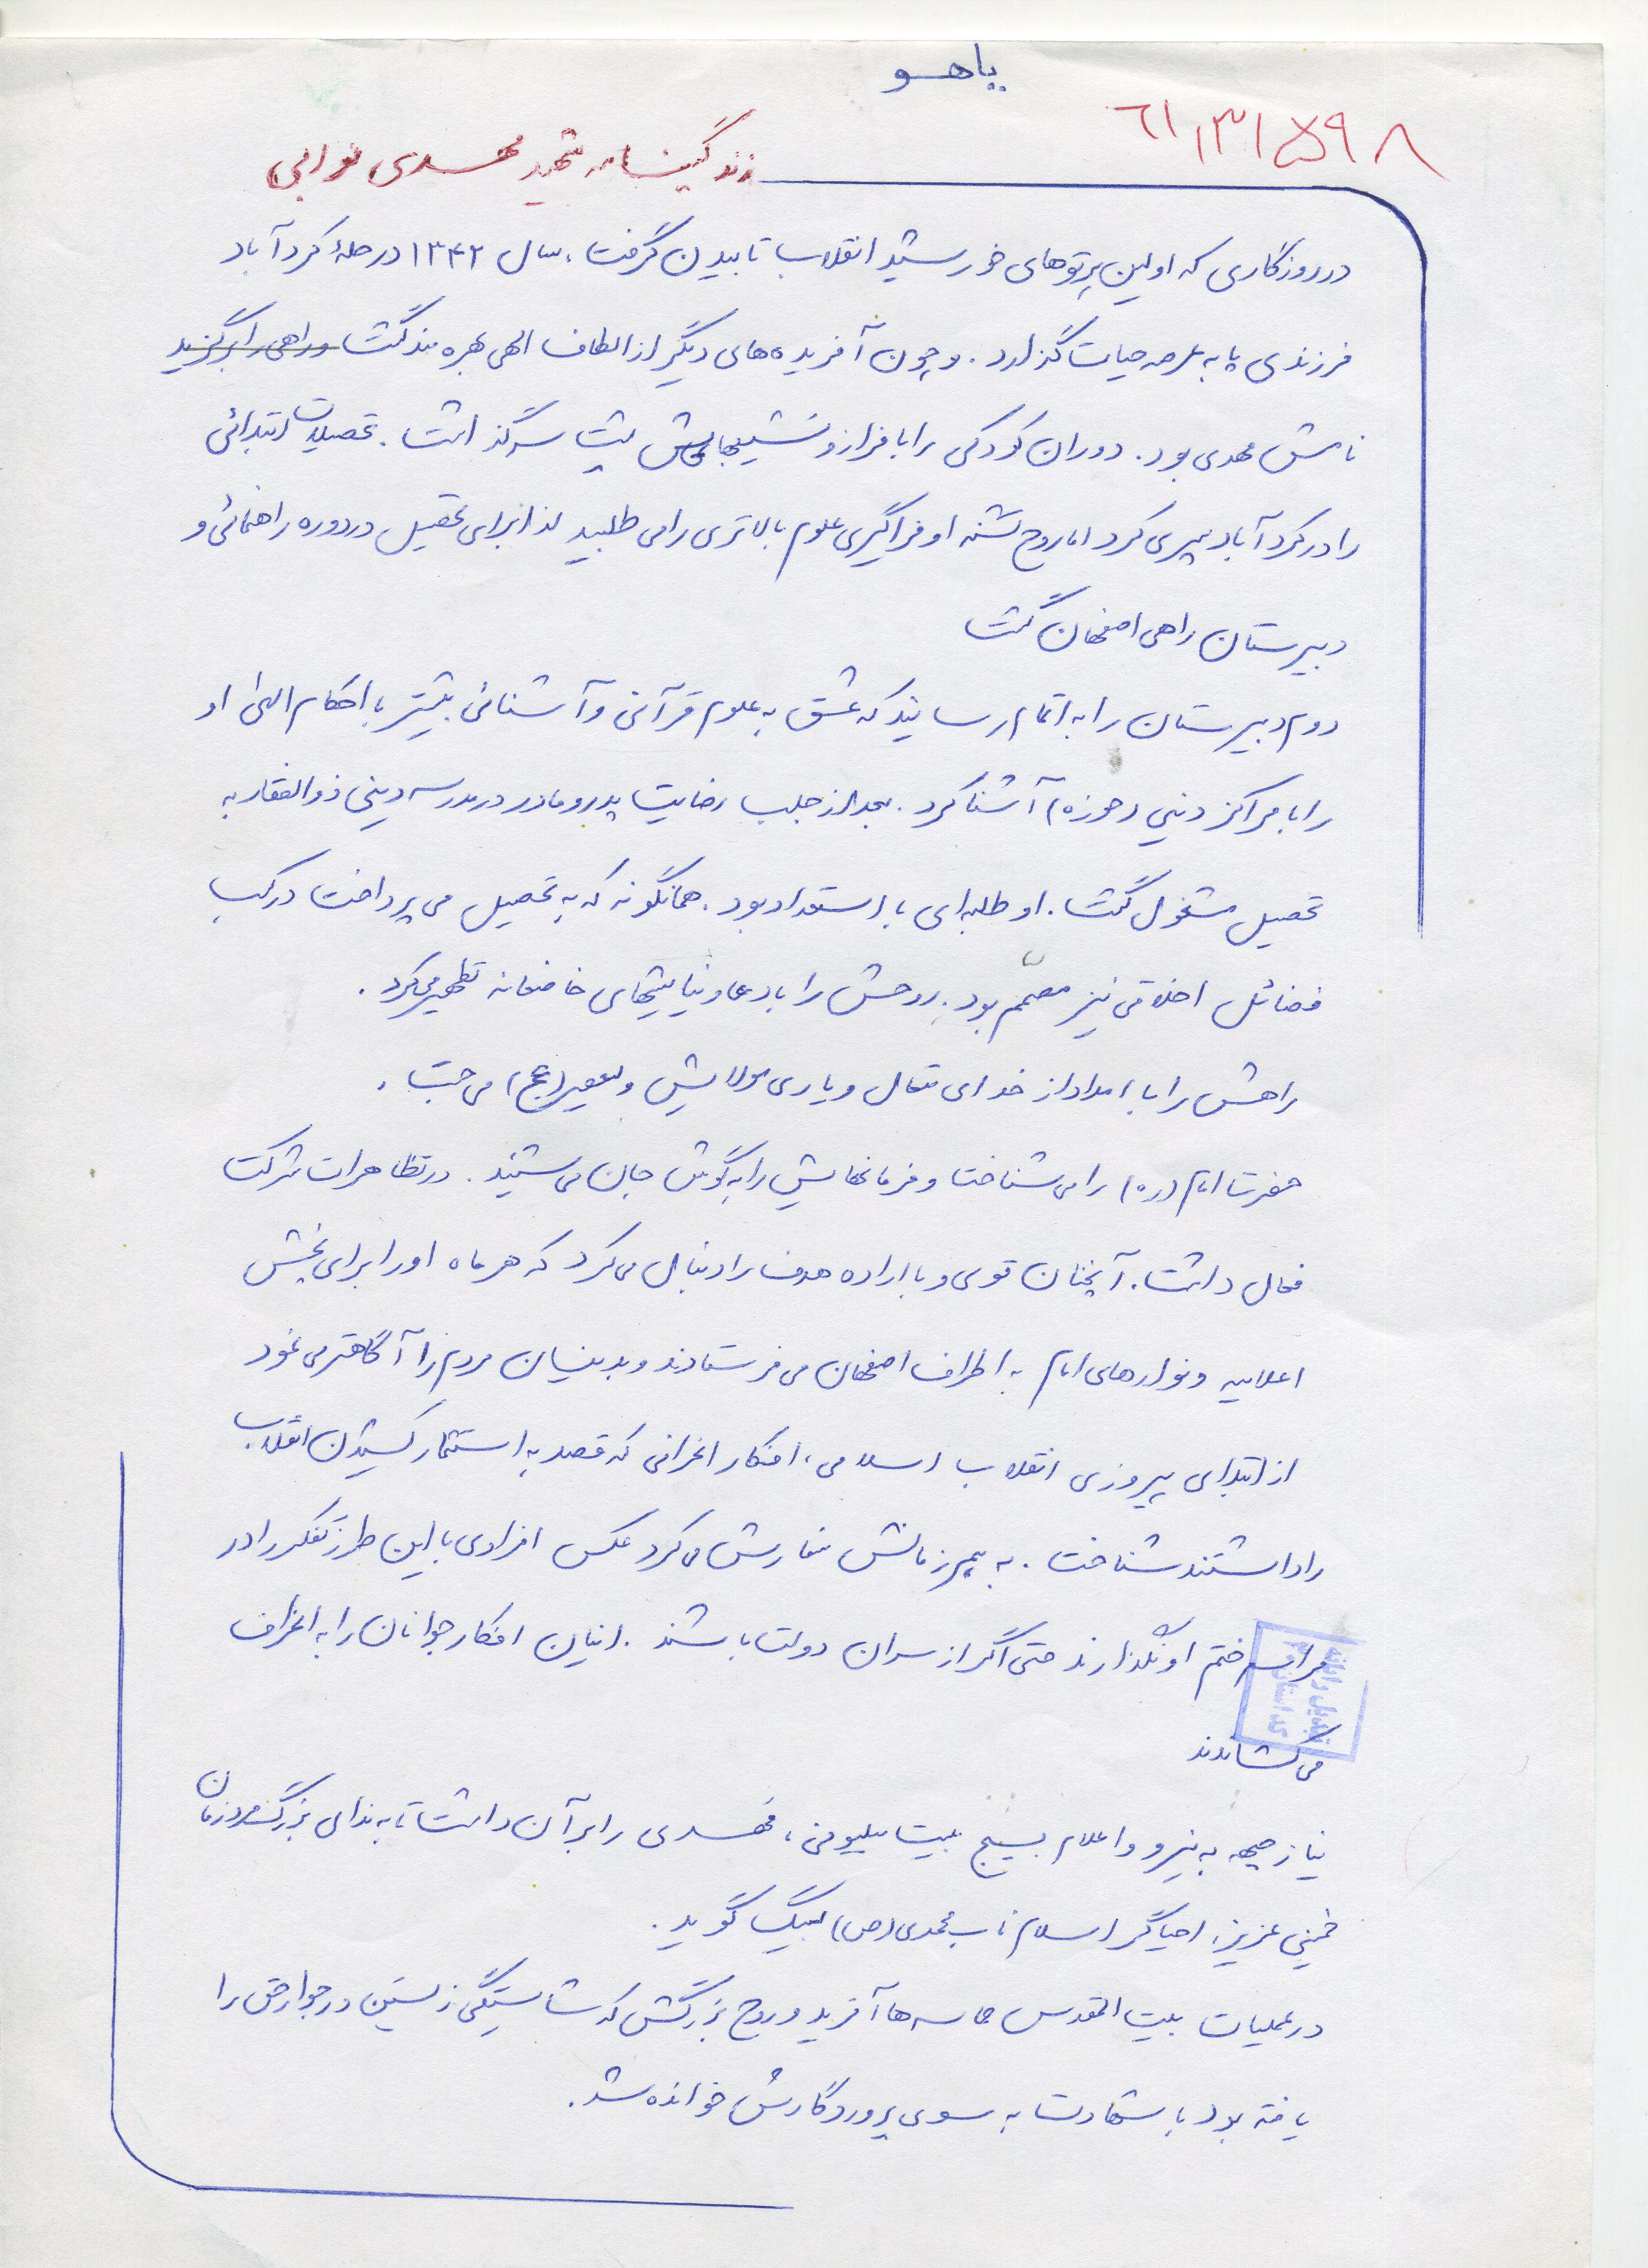 یاهو
۶۱۱۳۱۵۹۸
زندگینامه شهید مهدی نوابی
در روزگاری که اولین پرتوهای خورشید انقلاب تابیدن گرفت، سال ۱۳۴۲ در محلهٔ کردآباد
فرزندی پا به عرصه حیات گذارد. و چون آفریده‌های دیگر از الطاف الهی بهره‌مند گشت و راهی را برگزید
نامش مهدی بود. دوران کودکی را با فراز و نشیبهایش پشت سر گذاشت. تحصیلات ابتدائی
را در کردآباد سپری کرد اما روح تشنه او فراگیری علوم بالاتری را می طلبید لذا برای تحصیل در دوره راهنمائی و
دبیرستان راهی اصفهان گشت
دوم دبیرستان را به اتمام رسانید که عشق به علوم قرآنی و آشنائی بیشتر با احکام الهی او
را با مراکز دینی (حوزه) آشنا کرد. بعد از جلب رضایت پدر و مادر در مدرسه دینی ذوالفقار به
تحصیل مشغول گشت. او طلبه‌ای با استعداد بود. همانگونه که به تحصیل می پرداخت در کسب
فضائل اخلاقی نیز مصمّم بود. روحش را با دعا و نیایشهای خاضعانه تطهیر می کرد.
راهش را با امداد از خدای متعال و یاری مولایش ولیعصر (عج) می جست.
حضرت امام (ره) را می شناخت و فرمانهایش را به گوش جان می شنید. در تظاهرات شرکت
فعال داشت. آنچنان قوی و با اراده هدف را دنبال می کرد که هر ماه او را برای پخش
اعلامیه و نوارهای امام به اطراف اصفهان می فرستادند و بدینسان مردم را آگاهتر می نمود
از ابتدای پیروزی انقلاب اسلامی، افکار انحرافی که قصد به استثمار کشیدن انقلاب
را داشتند شناخت. به همرزمانش سفارش می کرد عکس افرادی با این طرز تفکر را در
مراسم ختم او نگذارند حتی اگر از سران دولت باشند. اینان افکار جوانان را به انحراف
می کشاندند
نیاز جبهه به نیرو و اعلام بسیج بیست میلیونی، مهدی را بر آن داشت تا به ندای بزرگمرد زمان
خمینی عزیز، احیاگر اسلام ناب محمدی (ص) لبیک گوید.
در عملیات بیت المقدس حماسه‌ها آفرید و روح بزرگش که شایستگی زیستن در جوار حق را
یافته بود با شهادت به سوی پروردگارش خوانده شد.